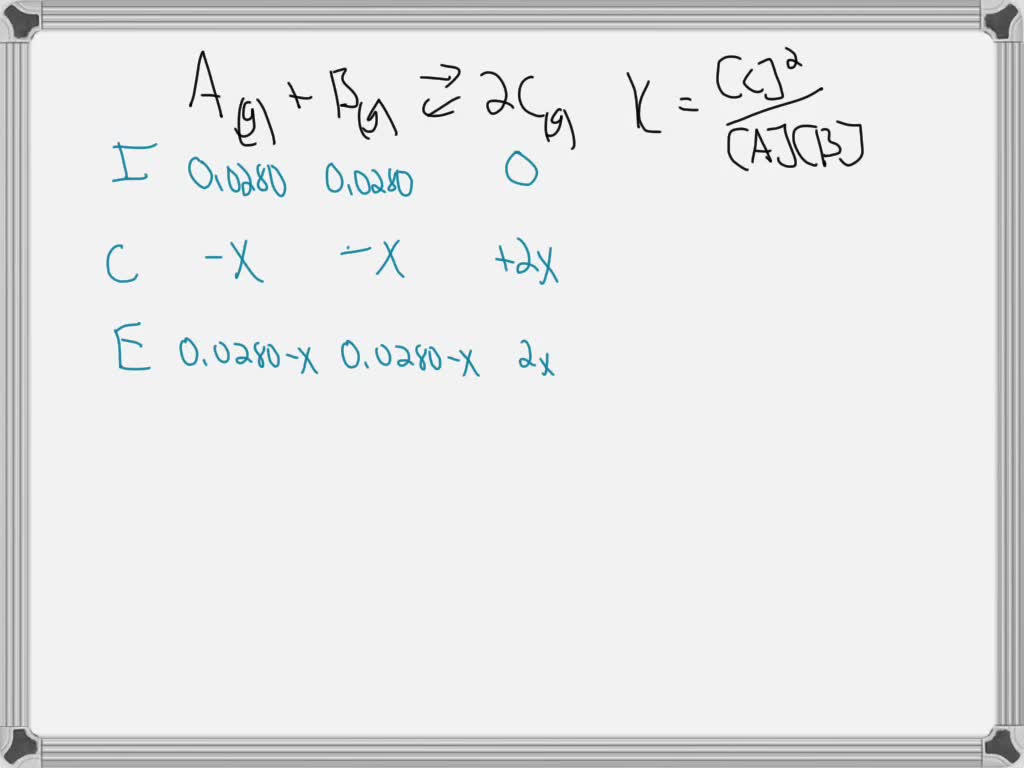 A(g) + B(g) ⇌ 2C(g) K = [C]²/[A][B]
I 0.0280 0.0280 0
C -x -x +2x
E 0.0280-x 0.0280-x 2x